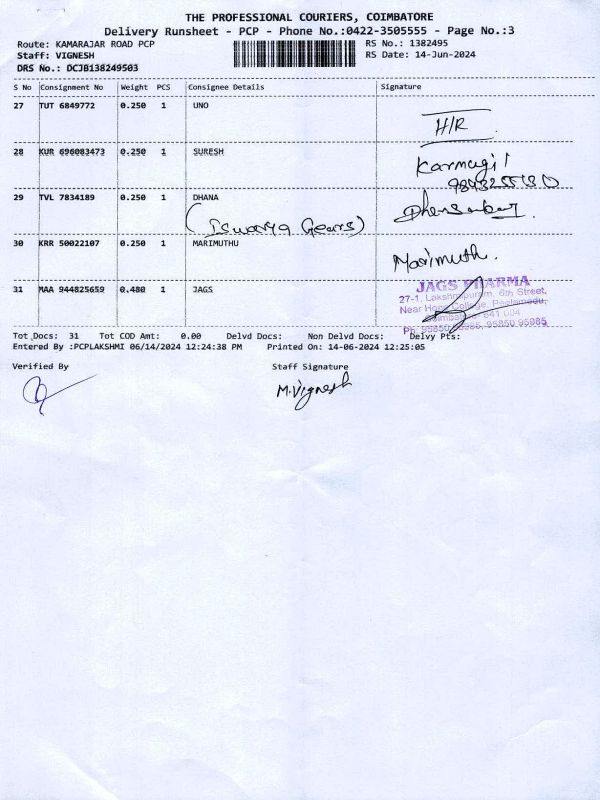 THE PROFESSIONAL COURIERS, COIMBATORE
Delivery Runsheet - PCP - Phone No.:0422-3505555 - Page No.:3
Route: KAMARAJAR ROAD PCP
RS No.: 1382495
Staff: VIGNESH
RS Date: 14-Jun-2024
DRS No.: DCJB138249503
S No Consignment No Weight PCS Consignee Details Signature
27 TUT 6849772 0.250 1 UNO
H/R
28 KUR 696083473 0.250 1 SURESH
29 TVL 7834189 0.250 1 DHANA
(Iswarya Gears)
30 KRR 50022107 0.250 1 MARIMUTHU
Marimuth.
31 MAA 944825659 0.480 1 JAGS
JAGS PHARMA
27-1, Lakshmipuram, 6th Street,
Near Hope College, Peelamedu,
641 004
95850 95985
Tot Docs: 31 Tot COD Amt: 0.00 Delvd Docs: Non Delvd Docs: Delvy Pts:
Entered By :PCPLAKSHMI 06/14/2024 12:24:38 PM Printed On: 14-06-2024 12:25:05
Verified By Staff Signature
M.Vignesh